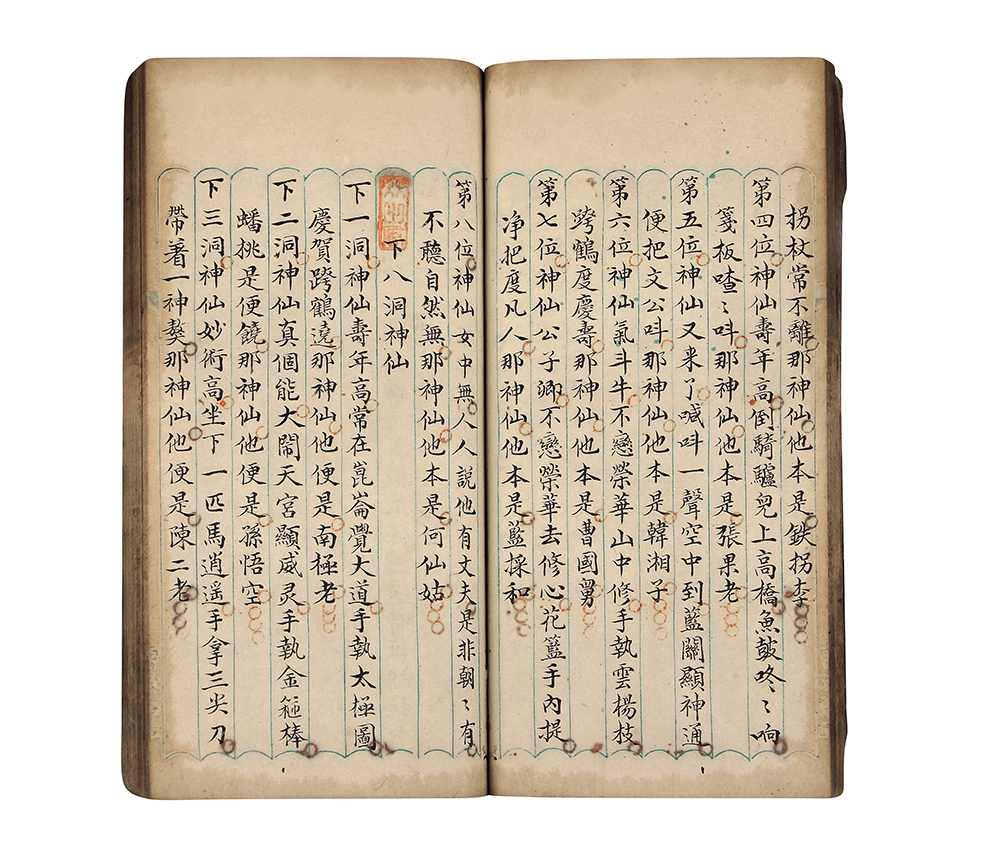 拐杖常不離那神仙他本是鉄拐李
第四位神仙壽年高倒騎驢兒上高橋魚鼓咚〻响
箋板喳〻呌那神仙他本是張果老
第五位神仙又来了喊呌一聲空中到藍關顯神通
便把文公呌那神仙他本是韓湘子
第六位神仙氣斗牛不戀榮華山中修手執雲楊枝
跨鶴度慶壽那神仙他本是曹國舅
第七位神仙公子卿不戀榮華去修心花籃手內提
净把度凡人那神仙他本是藍採和
第八位神仙女中無人人説他有丈夫是非朝〻有
不聽自然無那神仙他本是何仙姑
下八洞神仙
下一洞神仙壽年高常在崑崙覺大道手執太極圖
慶賀跨鶴遠那神仙他便是南極老
下二洞神仙真個能大閙天宮顯威灵手執金箍棒
蟠桃是便饒那神仙他便是孫悟空
下三洞神仙妙術高坐下一匹馬逍遥手拿三尖刀
帶着一神獒那神仙他便是陳二老